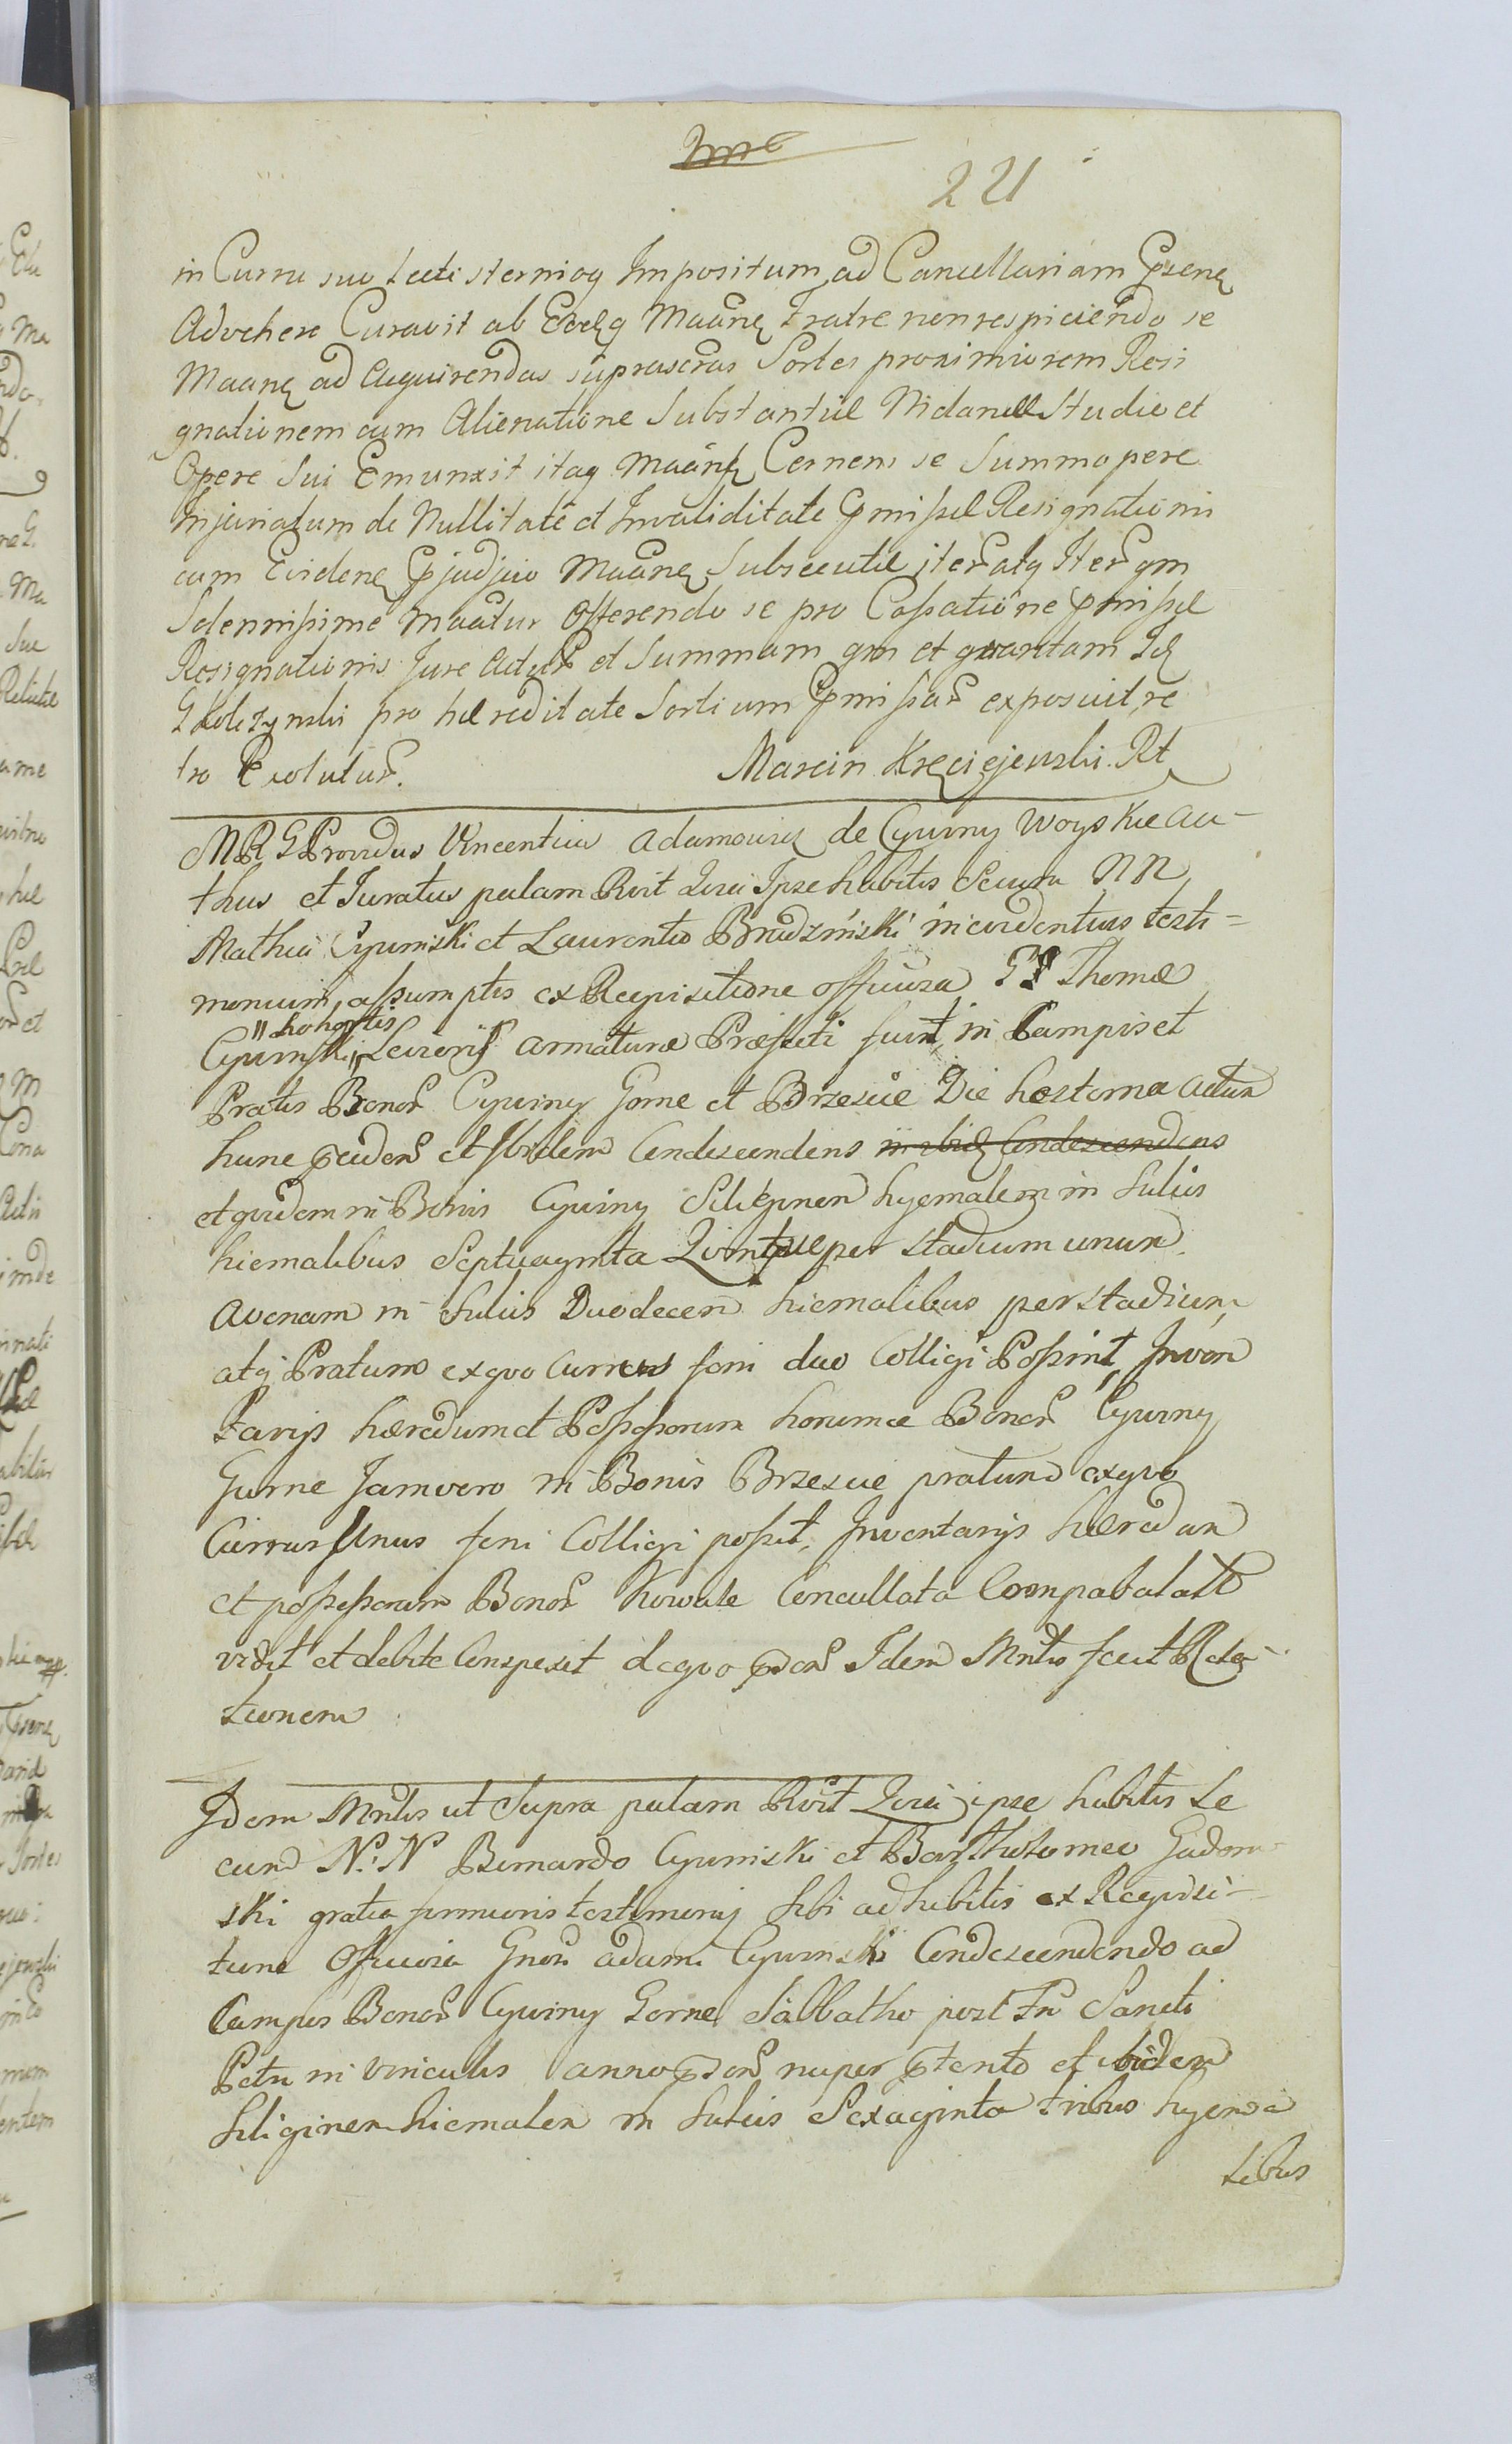 221
in Curru suo Lectisternioq Impositum ad Cancellariam Pnsenę
Advehere Curavit ab Eodęq Maanę Fratre non respiciendo se
Maanę ad Acquirendas suprascras Sortes proximiorem Resi
gnationem cum Alienatione Substantiæ Studio et
Opere Sui Emunxit itaq Maans Cernens se Summopere
Injuriatum de Nullitate et Invaliditate Pmissæ Resignationis
cum Evidenę Pjudjcio Maanę Subsecutæ iteratq Iter qm
Solennissime Maatur Offerendo se pro Cassatione Pmissæ
Resignationis Jure et Summam qm et quantam Idę
pro hæreditate Sortium Pmissar exposuit, re
tro Evolutur. Marcin Kręciejewski Rt
MRG Providus Vincentius Adamowicz de Cywiny Woyskie au-
thus et Juratus palam Rvit Quia Ipse habitis Secum NN
Mathia Cywinski et Laurentio Brudzinski in evidentius testi=
monium assumptis ex Requisitione officiosa GI Thomæ
Cywinski "Cohortis" Levioris armaturæ Præfecti fuit in Campis et
Pratis Bonor Cywiny Gorne et Brzescie Die hesterna Actum
hunc pceden et Ibidem Condescendens in ibid Condescendens
et quidem in Bonis Cywiny Siliginem hyemalem in Sulcis
hiemalibus Septuaginta Quinque per stadium unum
avenam in Sulcis Duodecem hiemalibus per stadium,
atq Pratum ex quo Currus feni duo Colligi Possint, Inven
tarijs hæredum et Possessorum horumce Bonor Cywiny
Gurne Jam vero in Bonis Brzescie pratum ex quo
Currus Unus feni Colligi possit, Inventarijs hæredum
et possessorum Bonor Kowale Conculcata Compabulatt
vidit et debite Conspexit de quo Idem Mntis fecit Rela-
tionem
Idem Mntis ut Supra palam Rvit Quia ipse habitis Se
cum N. N Bernardo Cywinski et Bartholomeo Gadom
ski gratia firmioris testimonij Sibi adhibitis ex Requisi-
tione Officiosa Gnosi Adami Cywinski Condescendendo ad
Campos Bonor Cywiny Gorne Sabbatho post Fm Sancti
Petri in vinculis anno nuper ptento et ibidem
Siliginem hiemalem in Sulcis Sexaginta tribus hyema
libus